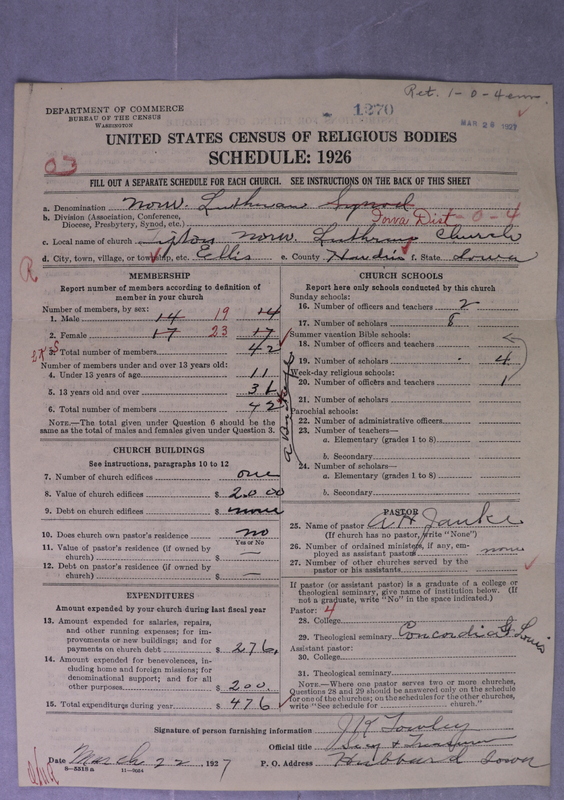 Ret. 1-0-4
1270
MAR 26 1927
DEPARTMENT OF COMMERCE
BUREAU OF THE CENSUS
WASHINGTON
UNITED STATES CENSUS OF RELIGIOUS BODIES
SCHEDULE: 1926
FILL OUT A SEPARATE SCHEDULE FOR EACH CHURCH. SEE INSTRUCTIONS ON THE BACK OF THIS SHEET
a. Denomination Norw. Lutheran Synod
b. Division (Association, Conference, Diocese, Presbytery, Synod, etc.) Iowa Dist - 0 - 4
c. Local name of church Tipton Norw. Luthern Church
d. City, town, village, or township, etc. Ellis e. County Hardin f. State Iowa
R
MEMBERSHIP
Report number of members according to definition of
member in your church
Number of members, by sex:
1. Male 14 19 14
2. Female 17 23 17
3. Total number of members 42
Number of members under and over 13 years old:
4. Under 13 years of age 11
5. 13 years old and over 31
6. Total number of members 42
NOTE.—The total given under Question 6 should be
the same as the total of males and females given under Question 3.
CHURCH BUILDINGS
See instructions, paragraphs 10 to 12
7. Number of church edifices one
8. Value of church edifices $ 2000
9. Debt on church edifices $ none
10. Does church own pastor's residence? no
Yes or No
11. Value of pastor's residence (if owned by
church) $ —
12. Debt on pastor's residence (if owned by
church) $ —
EXPENDITURES
Amount expended by your church during last fiscal year
13. Amount expended for salaries, repairs,
and other running expenses; for im-
provements or new buildings; and for
payments on church debt $ 276.
14. Amount expended for benevolences, in-
cluding home and foreign missions; for
denominational support; and for all
other purposes $ 200.
15. Total expenditures during year $ 476
CHURCH SCHOOLS
Report here only schools conducted by this church
Sunday schools:
16. Number of officers and teachers 2
17. Number of scholars 8
Summer vacation Bible schools:
18. Number of officers and teachers
19. Number of scholars 4
Week-day religious schools:
20. Number of officers and teachers 1
21. Number of scholars
Parochial schools:
22. Number of administrative officers
23. Number of teachers—
a. Elementary (grades 1 to 8)
b. Secondary
24. Number of scholars—
a. Elementary (grades 1 to 8)
b. Secondary
PASTOR
25. Name of pastor A H Janke
(If church has no pastor, write "None")
26. Number of ordained ministers, if any, em-
ployed as assistant pastors none
27. Number of other churches served by the
pastor or his assistants
If pastor (or assistant pastor) is a graduate of a college or
theological seminary, give name of institution below. (If
not a graduate, write "No" in the space indicated.)
Pastor: 4
28. College
29. Theological seminary Concordia St Louis
Assistant pastor:
30. College
31. Theological seminary
NOTE.—Where one pastor serves two or more churches,
Questions 28 and 29 should be answered only on the schedule
for one of the churches; on the schedules for the other churches,
write "See schedule for church."
Signature of person furnishing information
Official title Secy & Treasurer
Date March 22, 1927 P. O. Address Hubbard Iowa
8-5318a 11-9064